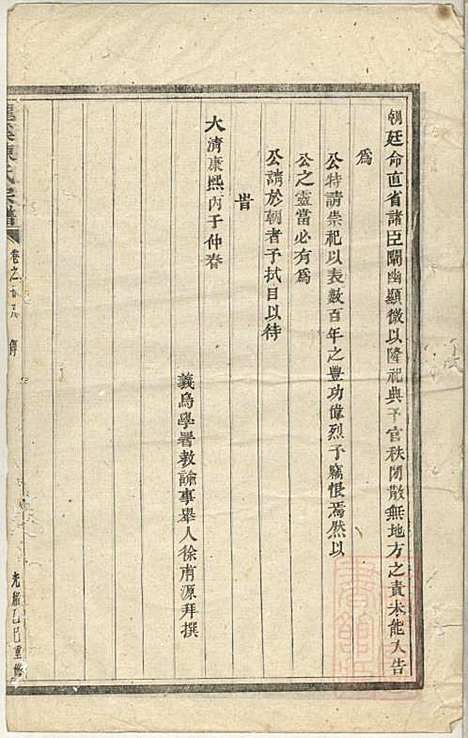 朝廷命直省諸臣闡幽顯微以隆祀典予官秩閒散無地方之責未能入告
為
公特請崇祀以表數百年之豐功偉烈予竊恨焉然以
公之靈當必有為
公請於朝者予拭目以待
旹
大清康熙丙子仲春
義烏學署教諭事舉人徐肅源拜撰
陳氏宗譜
卷之 傳
光緒乙巳重修